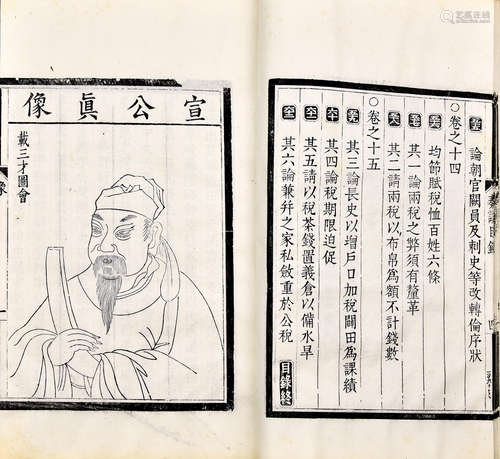 論朝官闕員及刺史等改轉倫序狀
卷之十四
均節賦稅恤百姓六條
其一論兩稅之弊須有釐革
其二請兩稅以布帛為額不計錢數
卷之十五
其三論長吏以增戶口加稅闢田為課績
其四論稅期限迫促
其五請以稅茶錢置義倉以備水旱
其六論兼并之家私斂重於公稅
目錄終
宣公真像
載三才圖會